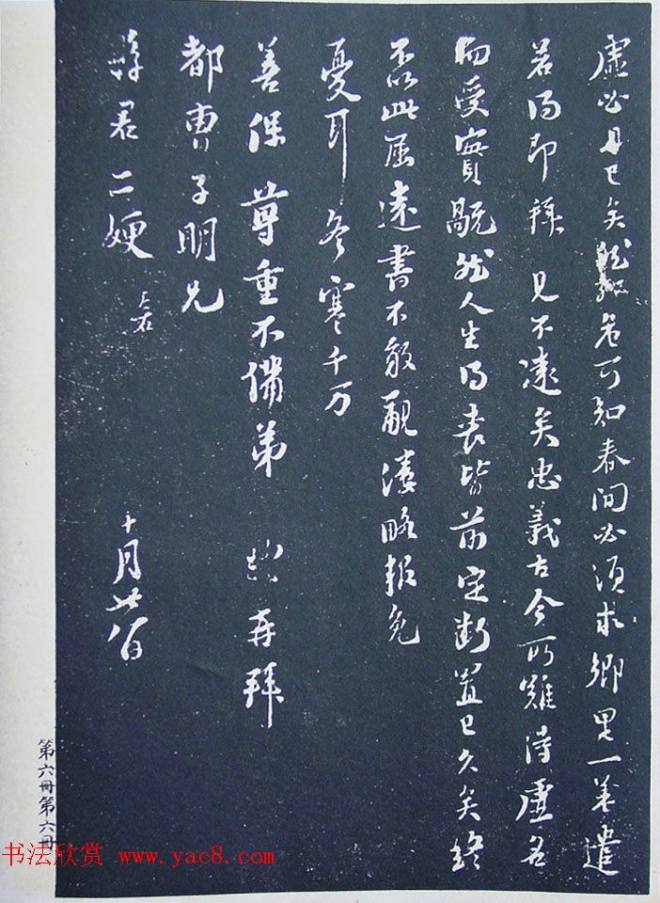 可知春間必須求鄉里一差遣
若得即拜見不遠矣忠義古今所難得虛名
而受實然人生得喪皆前定斷置已久矣終
不以此屈遠書不敢覼縷略報免
憂耳冬寒千万
善保尊重不備弟 再拜
都曹子明兄
君二 十月廿
第六冊第六
书法欣赏 www.yac8.com